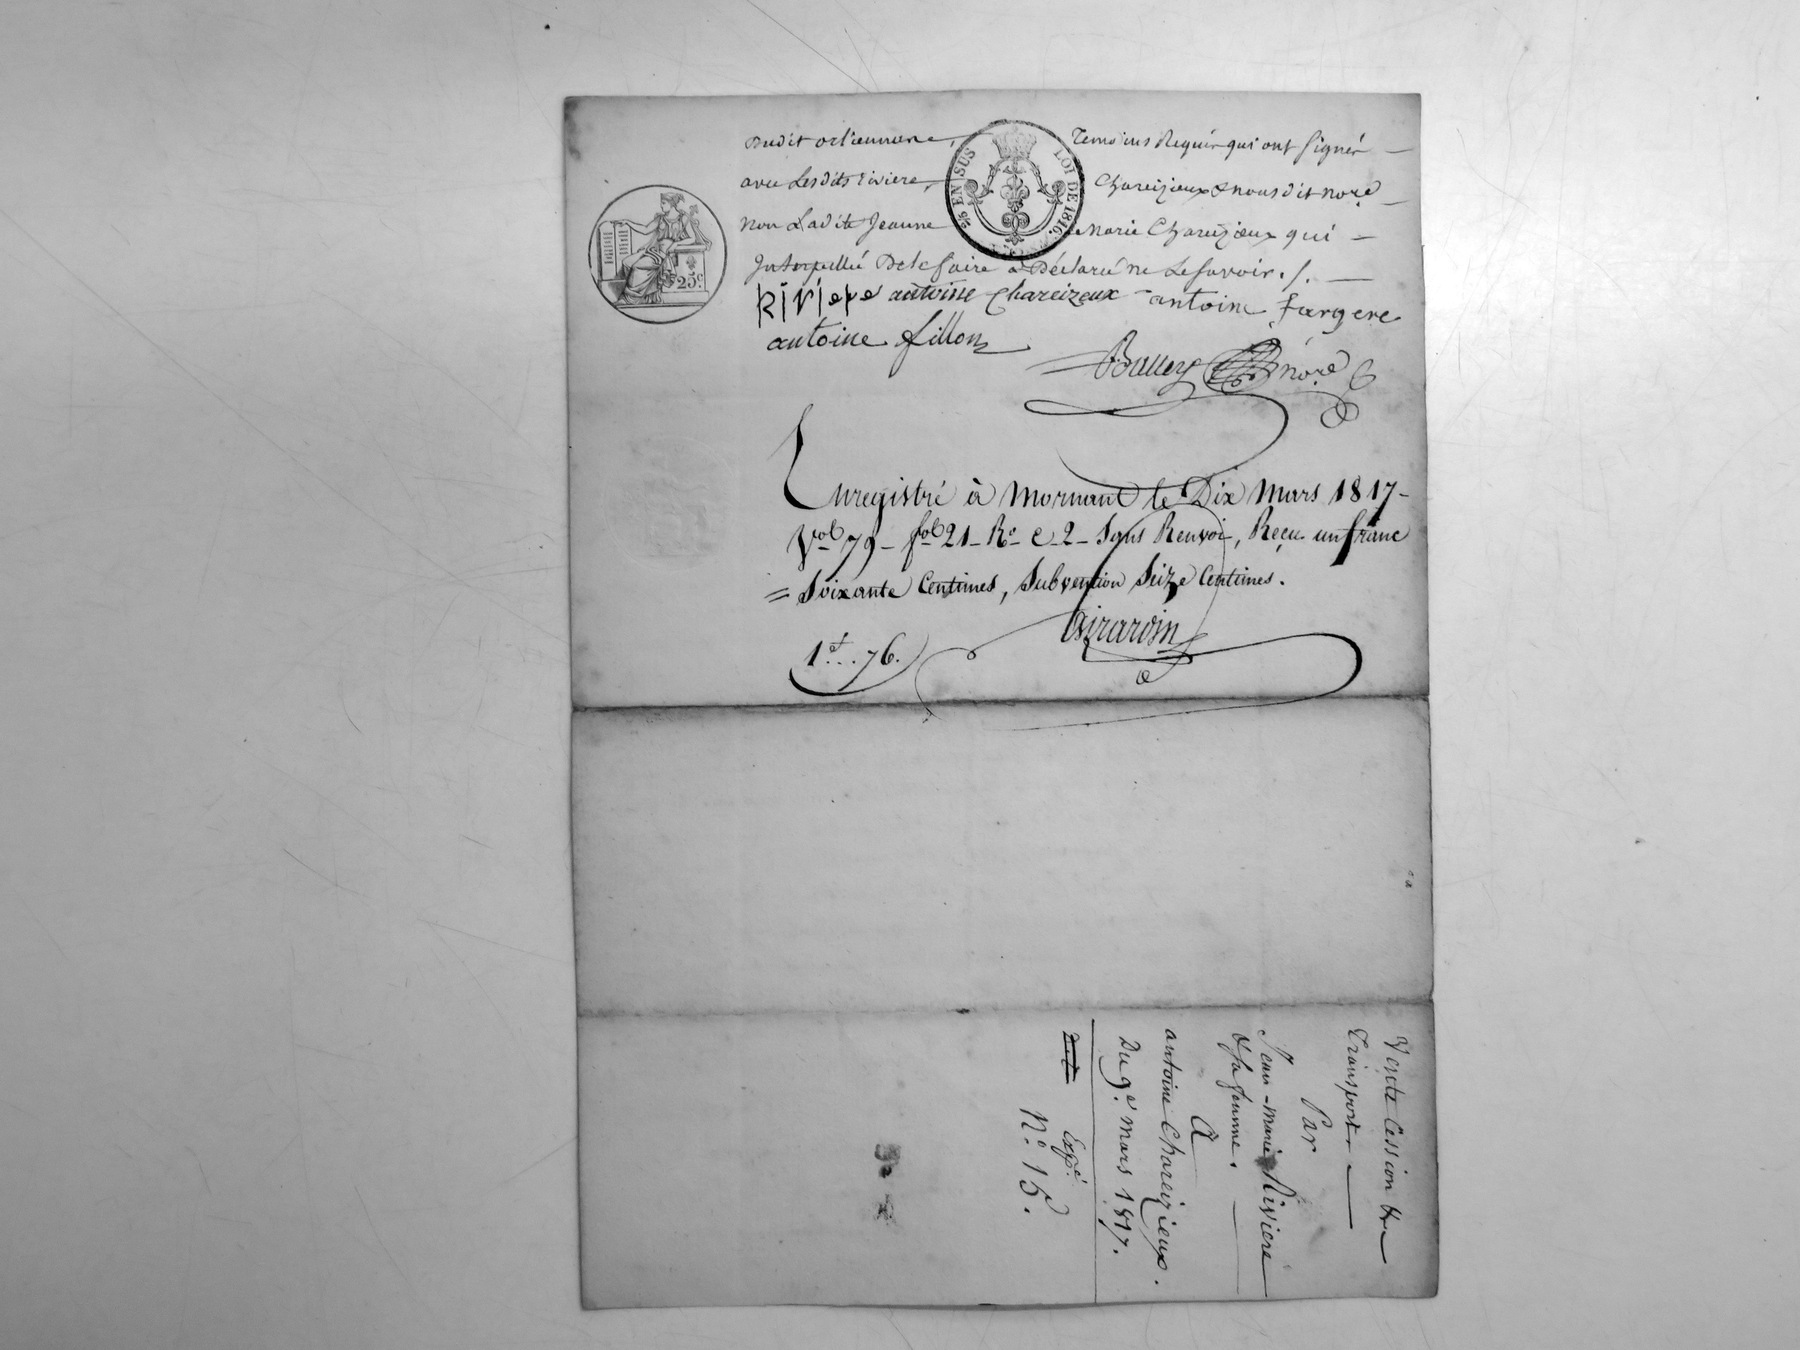 dudit orliennare, Temoins Requis qui ont signér
avec Lesdits riviere, Chareizieux & nous dit nore
non Ladite Jeanne Marie Chareizieux qui
Interpellée De le faire a Déclaré ne Le savoir ./.
Riviere antoine Chareizeux antoine fargere
antoine fillon
Balley nore
25 c.
2/5 EN SUS LOI DE 1816.
Enregistré à Mornant le Dix Mars 1817
Vol 79 fol 21 Ro C 2 Sans Renvoi, Reçu un franc
= Soixante Centimes, Subvention Seize Centimes.
Girardin
1 f... 76.
Vente Cession &
Transport
Par
Jean-Marie Riviere
& sa femme.
A
antoine Chareizieux.
Du 9e. Mars 1817.
Expé.
N° 15.